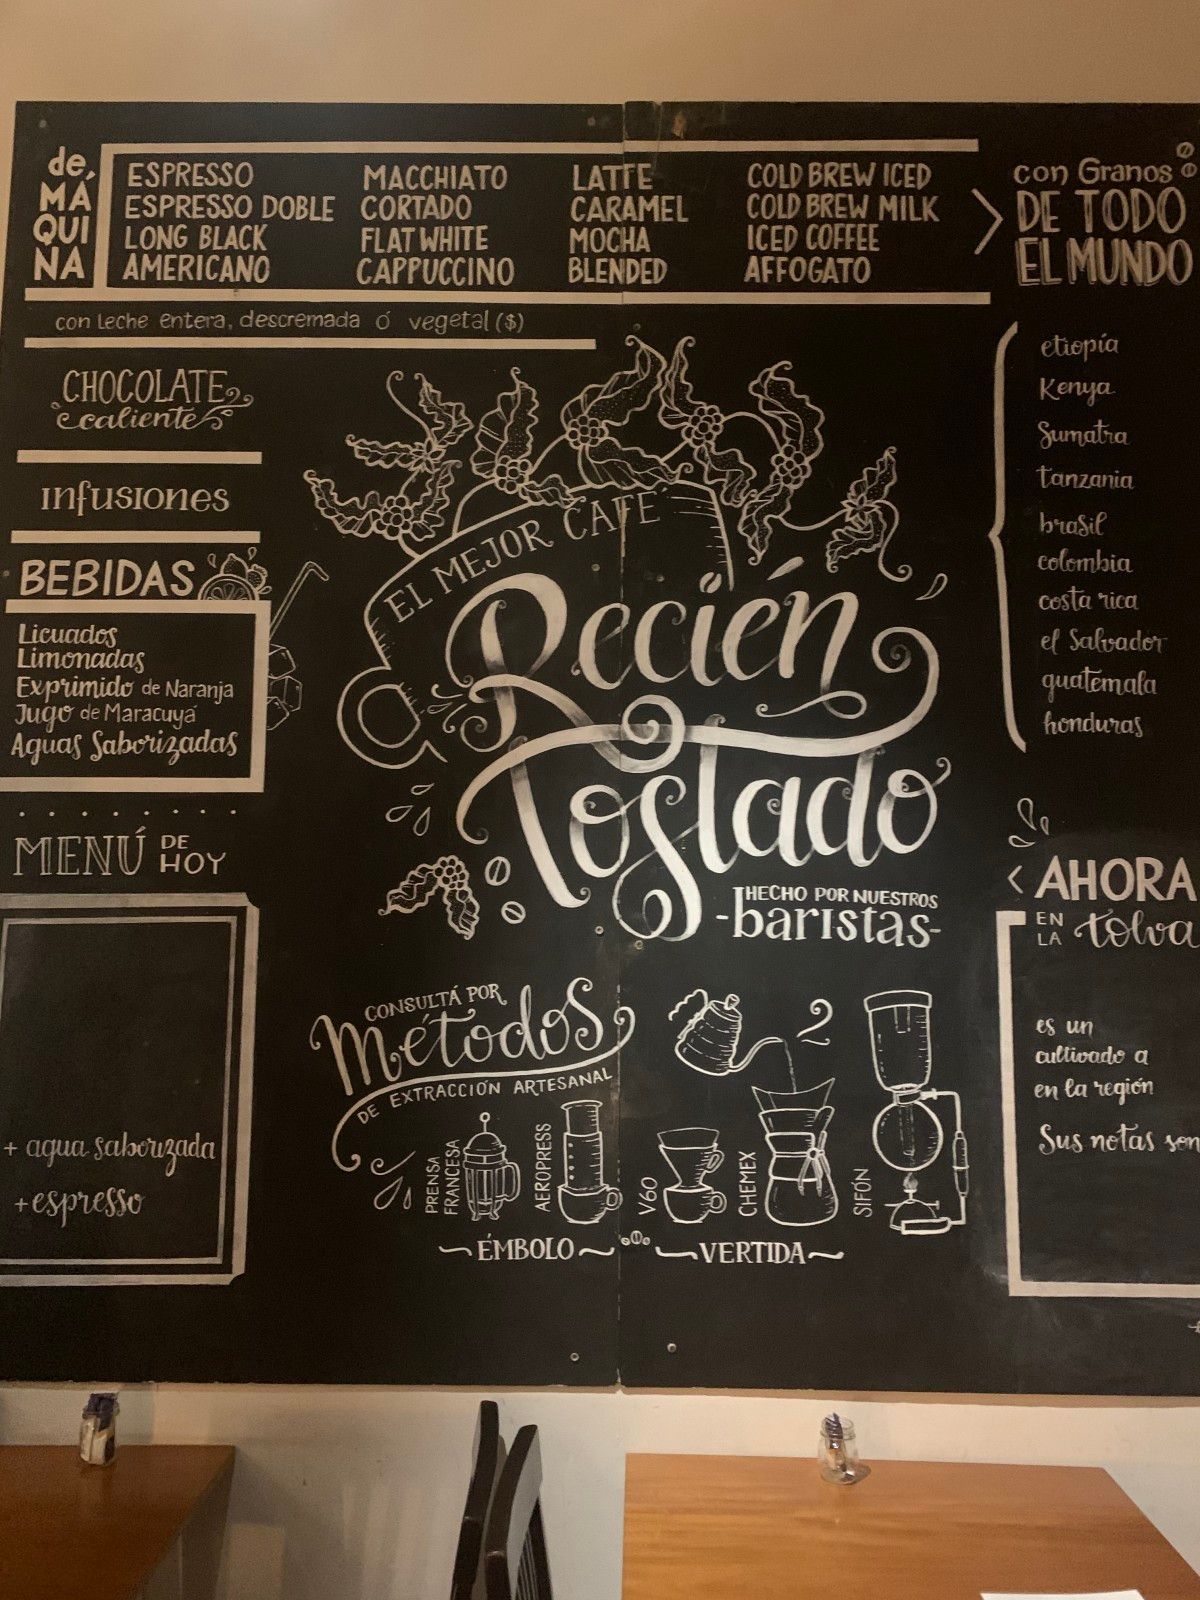 de
MÁ
QUI
NA
ESPRESSO
ESPRESSO DOBLE
LONG BLACK
AMERICANO
MACCHIATO
CORTADO
FLAT WHITE
CAPPUCCINO
LATTE
CARAMEL
MOCHA
BLENDED
COLD BREW ICED
COLD BREW MILK
ICED COFFEE
AFFOGATO
con Leche entera, descremada ó vegetal ($)
con Granos
DE TODO
EL MUNDO
etiopía
Kenya
Sumatra
tanzania
brasil
colombia
costa rica
el Salvador
guatemala
honduras
CHOCOLATE
caliente
infusiones
BEBIDAS
Licuados
Limonadas
Exprimido de Naranja
Jugo de Maracuyá
Aguas Saborizadas
EL MEJOR CAFÉ
Recién
Tostado
HECHO POR NUESTROS
-baristas-
MENÚ DE HOY
+ agua saborizada
+ espresso
CONSULTÁ POR
Métodos
DE EXTRACCIÓN ARTESANAL
PRENSA
FRANCESA
AEROPRESS
V60
CHEMEX
SIFÓN
ÉMBOLO
VERTIDA
< AHORA
EN LA tolva
es un
cultivado a
en la región
Sus notas son